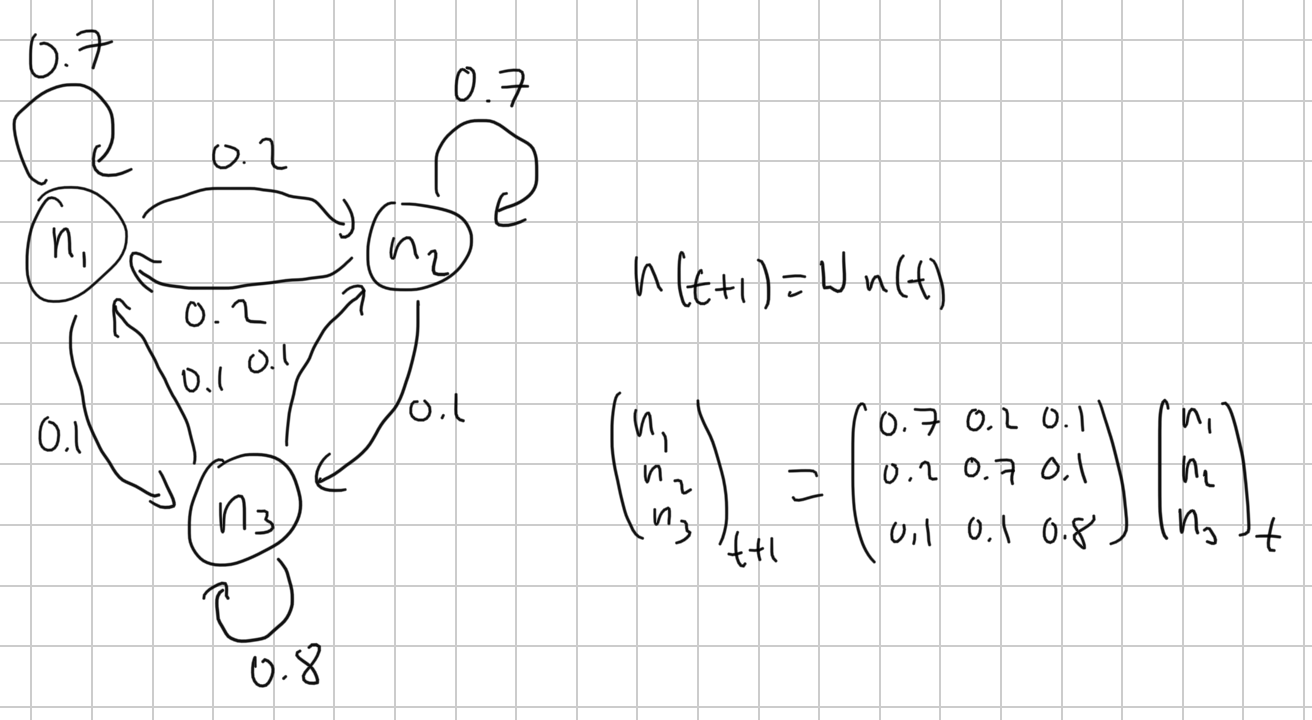 0.7
0.7
0.2
n₁
n₂
0.2
n(t+1)=W n(t)
0.1 0.1
0.1
0.1
n₃
0.8
(n₁ n₂ n₃)t+1 = (0.7 0.2 0.1
0.2 0.7 0.1
0.1 0.1 0.8) (n₁ n₂ n₃)t